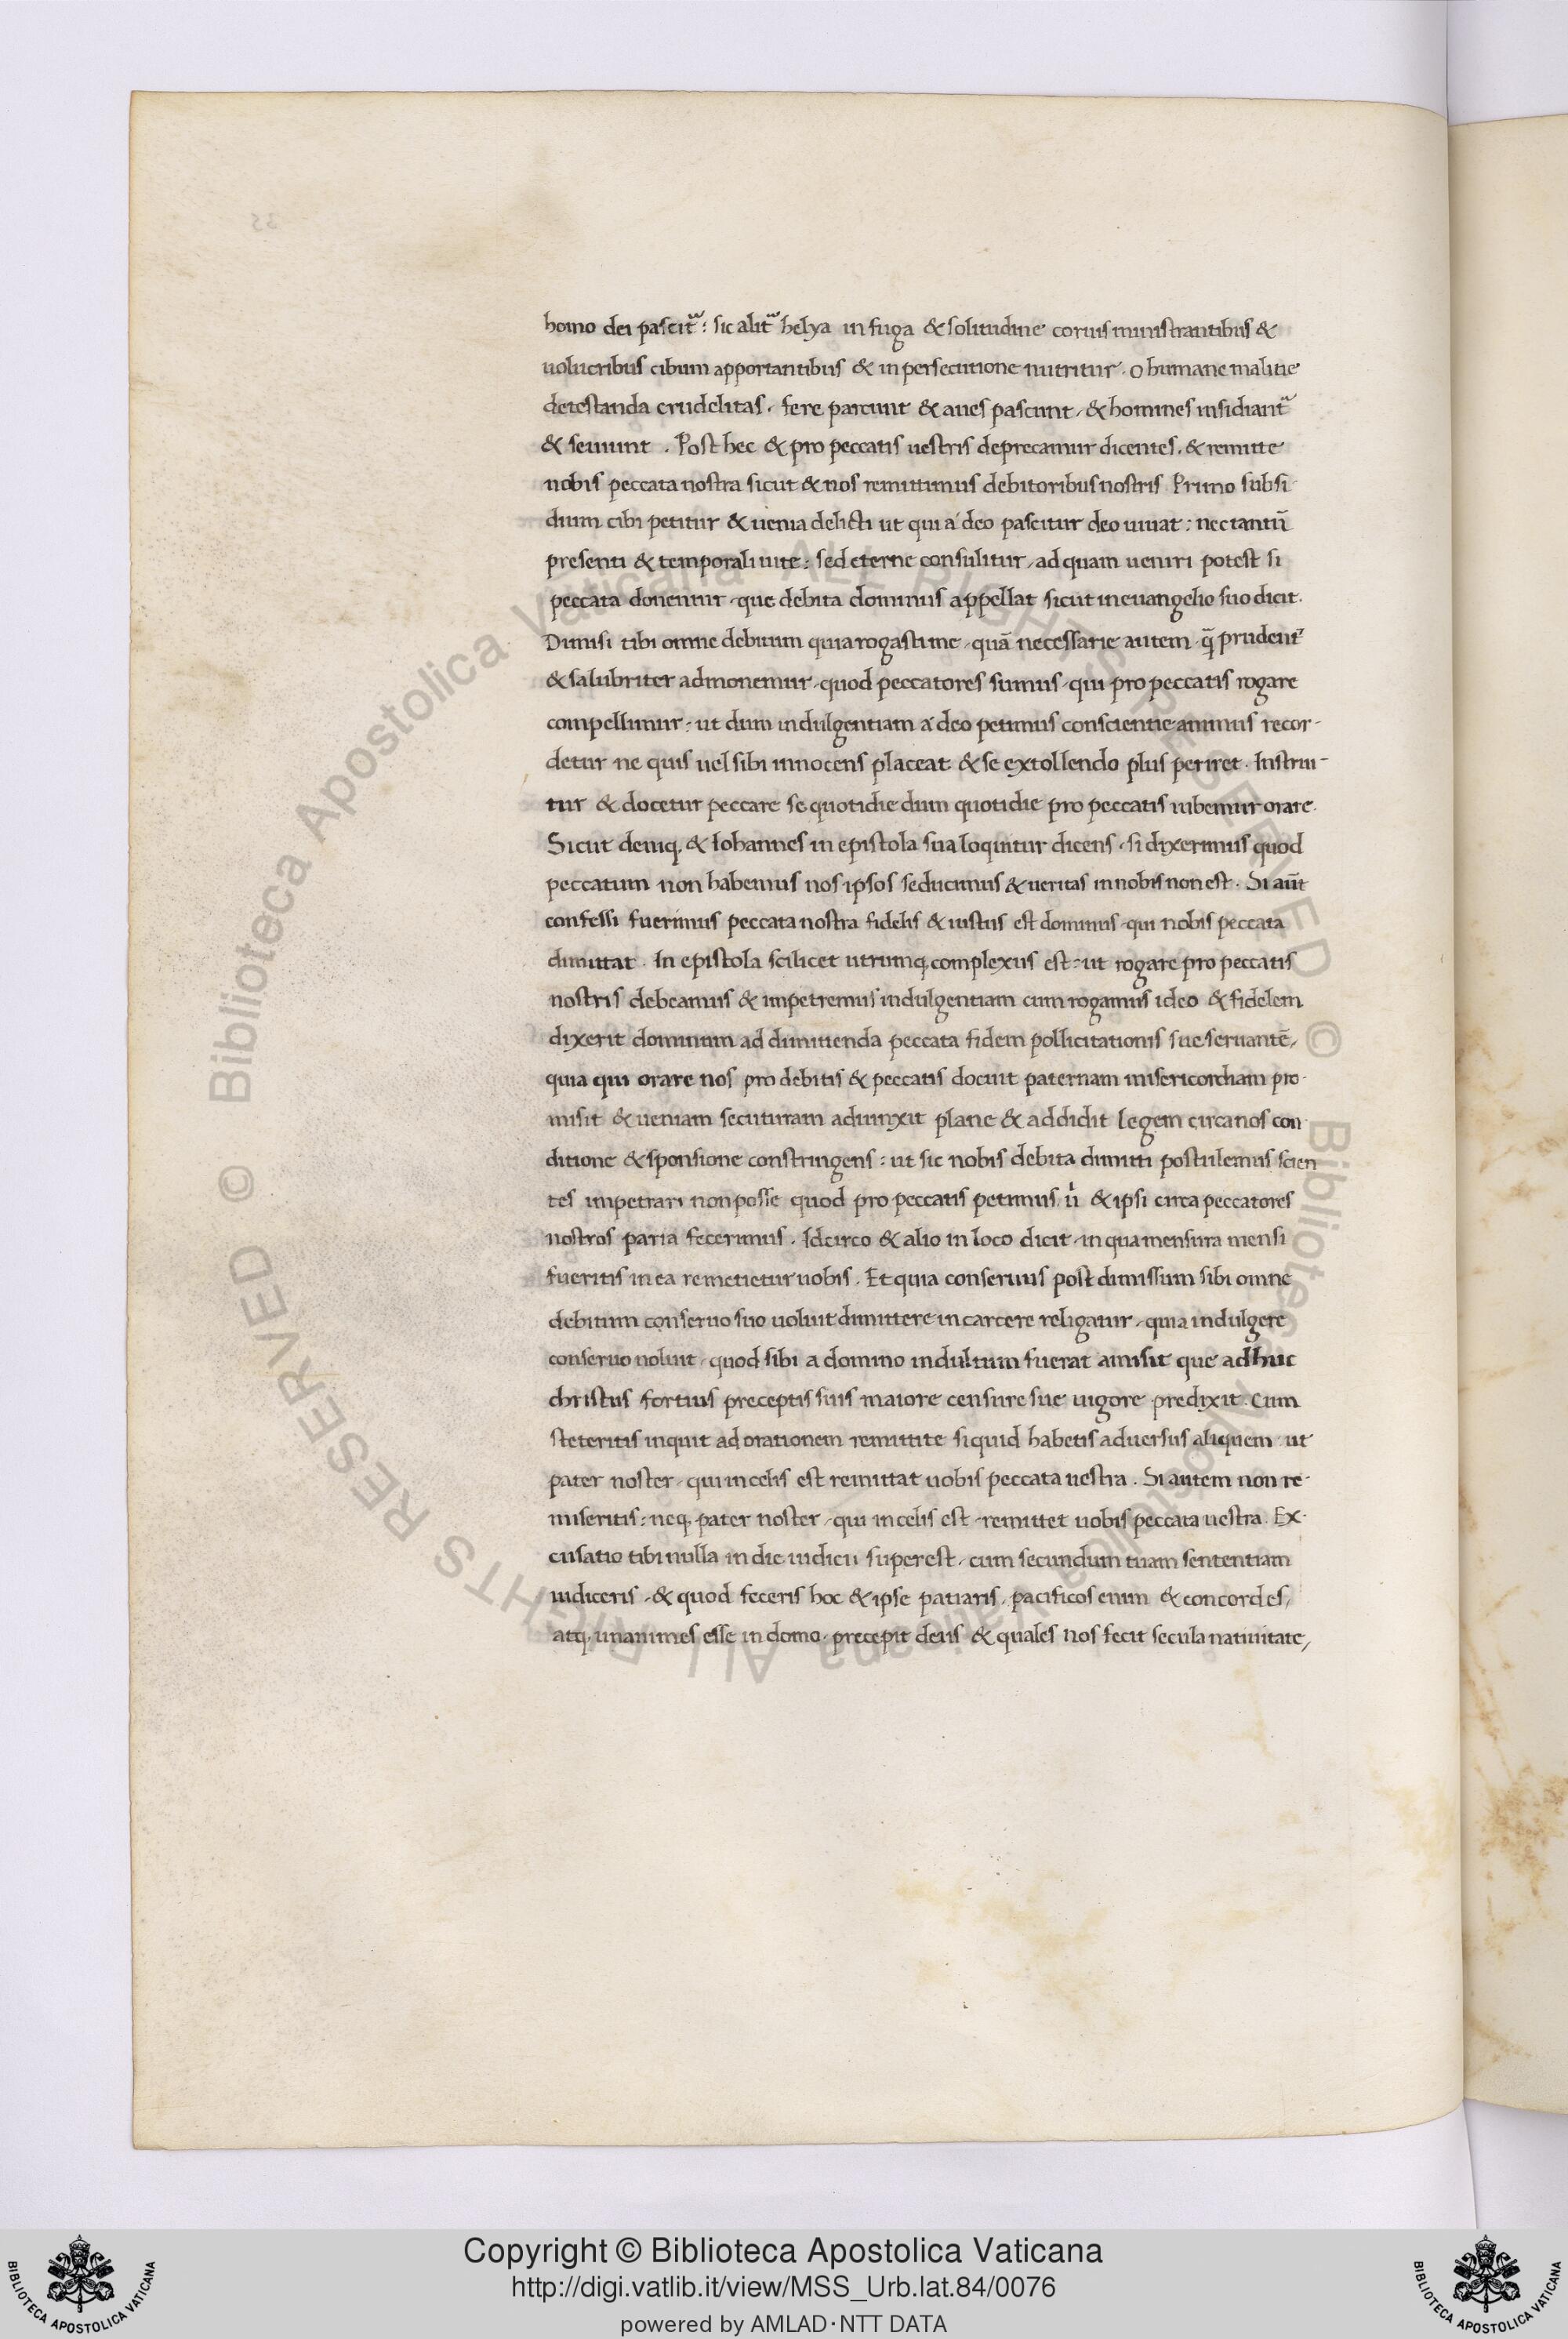 homo dei pascit᷒: sic alit᷒ helya in fuga & solitudine coruis ministrantibus &
uolucribus cibum apportantibus & in persecutione nutritur. o humane malitie
detestanda crudelitas. fere parcunt & aues pascunt, & homines insidiant᷒
& seuiunt. Post hec & pro peccatis uestris deprecamur dicentes. & remitte
nobis peccata nostra sicut & nos remittimus debitoribus nostris Primo subsi
dium cibi petitur & uenia delicti ut qui a deo pascitur deo uiuat: nec tantū
presenti & temporali uite: sed eterne consulitur, ad quam ueniri potest si
peccata donentur, que debita dominus appellat sicut in euangelio suo dicit.
Dimisi tibi omne debitum quia rogasti me, quā necessarie autem q̄ prudent᷒
& salubriter admonemur, quod peccatores sumus, qui pro peccatis rogare
compellimur, ut dum indulgentiam a deo petimus conscientie animus recor-
detur ne quis uel sibi innocens placeat & se extollendo plus periret. Instrui-
tur & docetur peccare se quotidie dum quotidie pro peccatis iubemur orare.
Sicut deniq. & Iohannes in epistola sua loquitur dicens, si dixerimus quod
peccatum non habemus nos ipsos seducimus & ueritas in nobis non est. Si aūt
confessi fuerimus peccata nostra fidelis & iustus est dominus, qui nobis peccata
dimittat. In epistola scilicet utrumq. complexus est: ut rogare pro peccatis
nostris debeamus & impetremus indulgentiam cum rogamus ideo & fidelem
dixerit dominum ad dimittenda peccata fidem pollicitationis sue seruantē,
quia qui orare nos pro debitis & peccatis docuit paternam misericordiam pro-
misit & ueniam secuturam adiunxit plane & addidit legem circa nos con
ditione & sponsione constringens: ut sic nobis debita dimitti postulemus scien
tes impetrari non posse quod pro peccatis petimus, ů & ipsi circa peccatores
nostros paria fecerimus. Idcirco & alio in loco dicit, in qua mensura mensi
fueritis in ea remetietur uobis. Et quia conseruus post dimissum sibi omne
debitum conseruo suo uoluit dimittere in carcere religatur, quia indulgere
conseruo noluit, quod sibi a domino indultum fuerat amisit que adhuc
christus fortius preceptis suis maiore censure sue uigore predixit. Cum
steteritis inquit ad orationem remittite si quid habetis aduersus aliquem ut
pater noster, qui in celis est remittat uobis peccata uestra. Si autem non re-
miseritis: neq. pater noster, qui in celis est, remittet uobis peccata uestra. Ex-
cusatio tibi nulla in die iudicii superest, cum secundum tuam sententiam
iudiceris, & quod feceris hoc & ipse patiaris, pacificos enim & concordes,
atq. unanimes esse in domo, precepit deus & quales nos fecit secula natiuitate,
Copyright © Biblioteca Apostolica Vaticana
http://digi.vatlib.it/view/MSS_Urb.lat.84/0076
powered by AMLAD·NTT DATA